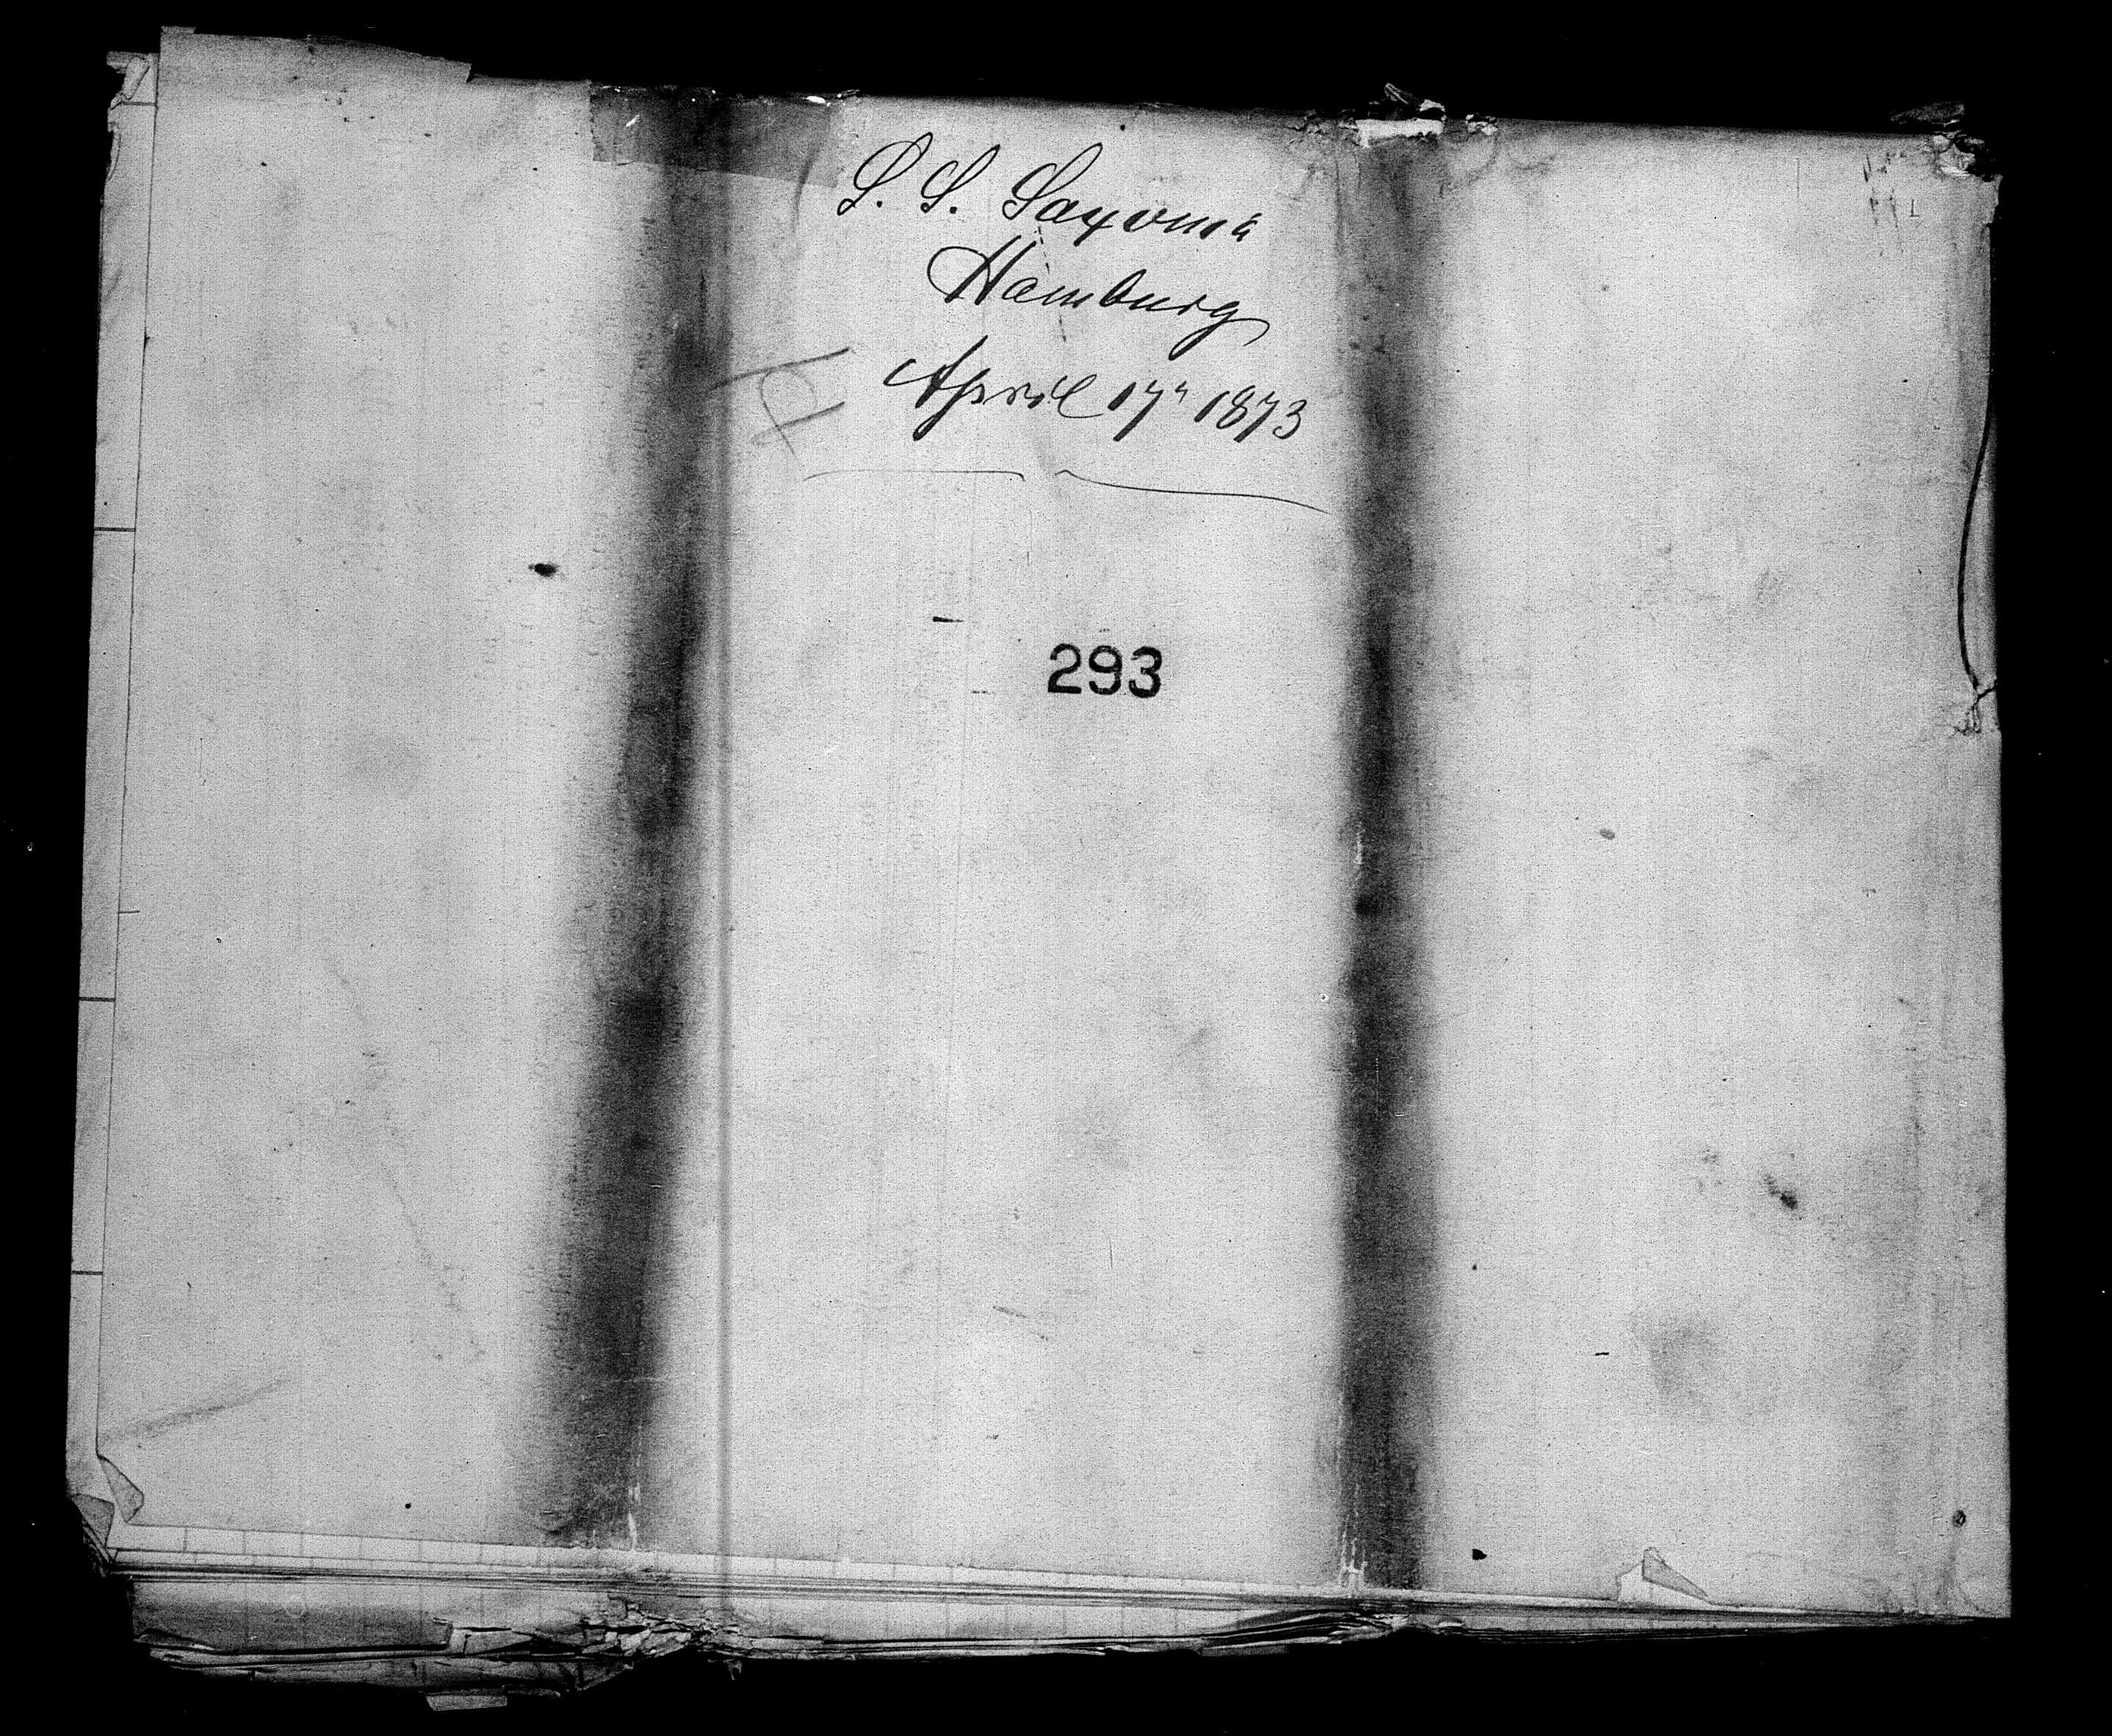 S. S. Saxonia
Hamburg
April 17" 1873
293